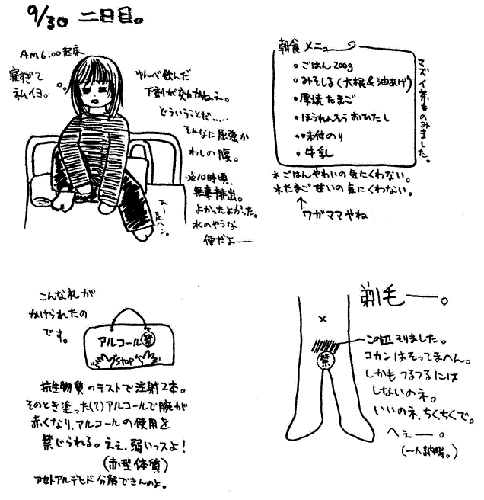 9/30 二日目。
AM6:00起床
寝すぎて
ネムイヨ。
ゆんべ飲んだ
下剤が効かねえ。
どういうことだ……
そんなに屈強か
わしの腹。
無事排出。
よかったよかった。
水のような
便だよ──
朝食メニュー
・ごはん200g
・みそしる(大根&油あげ)
・厚焼たまご
・ほうれんそうおひたし
・味付のり
・牛乳
マズイ茶ものみました。
*ごはんやわい。気にくわない。
*たまご甘い。気にくわない。
↑
ワガママやね
こんな札が
かけられたの
です。
アルコール禁
STOP
抗生物質のテストで注射2本。
そのとき塗った(?)アルコールで腕が
赤くなり、アルコールの使用を
禁じられる。ええ、弱いっスよ!
(赤型体質)
アセトアルデヒド分解できんのよ。
剃毛──。
禁
この辺そりました。
コカンはそってまへん。
しかもつるつるには
しないのネ。
いいのネ、ちくちくで。
へぇ──。
(一人説明。)